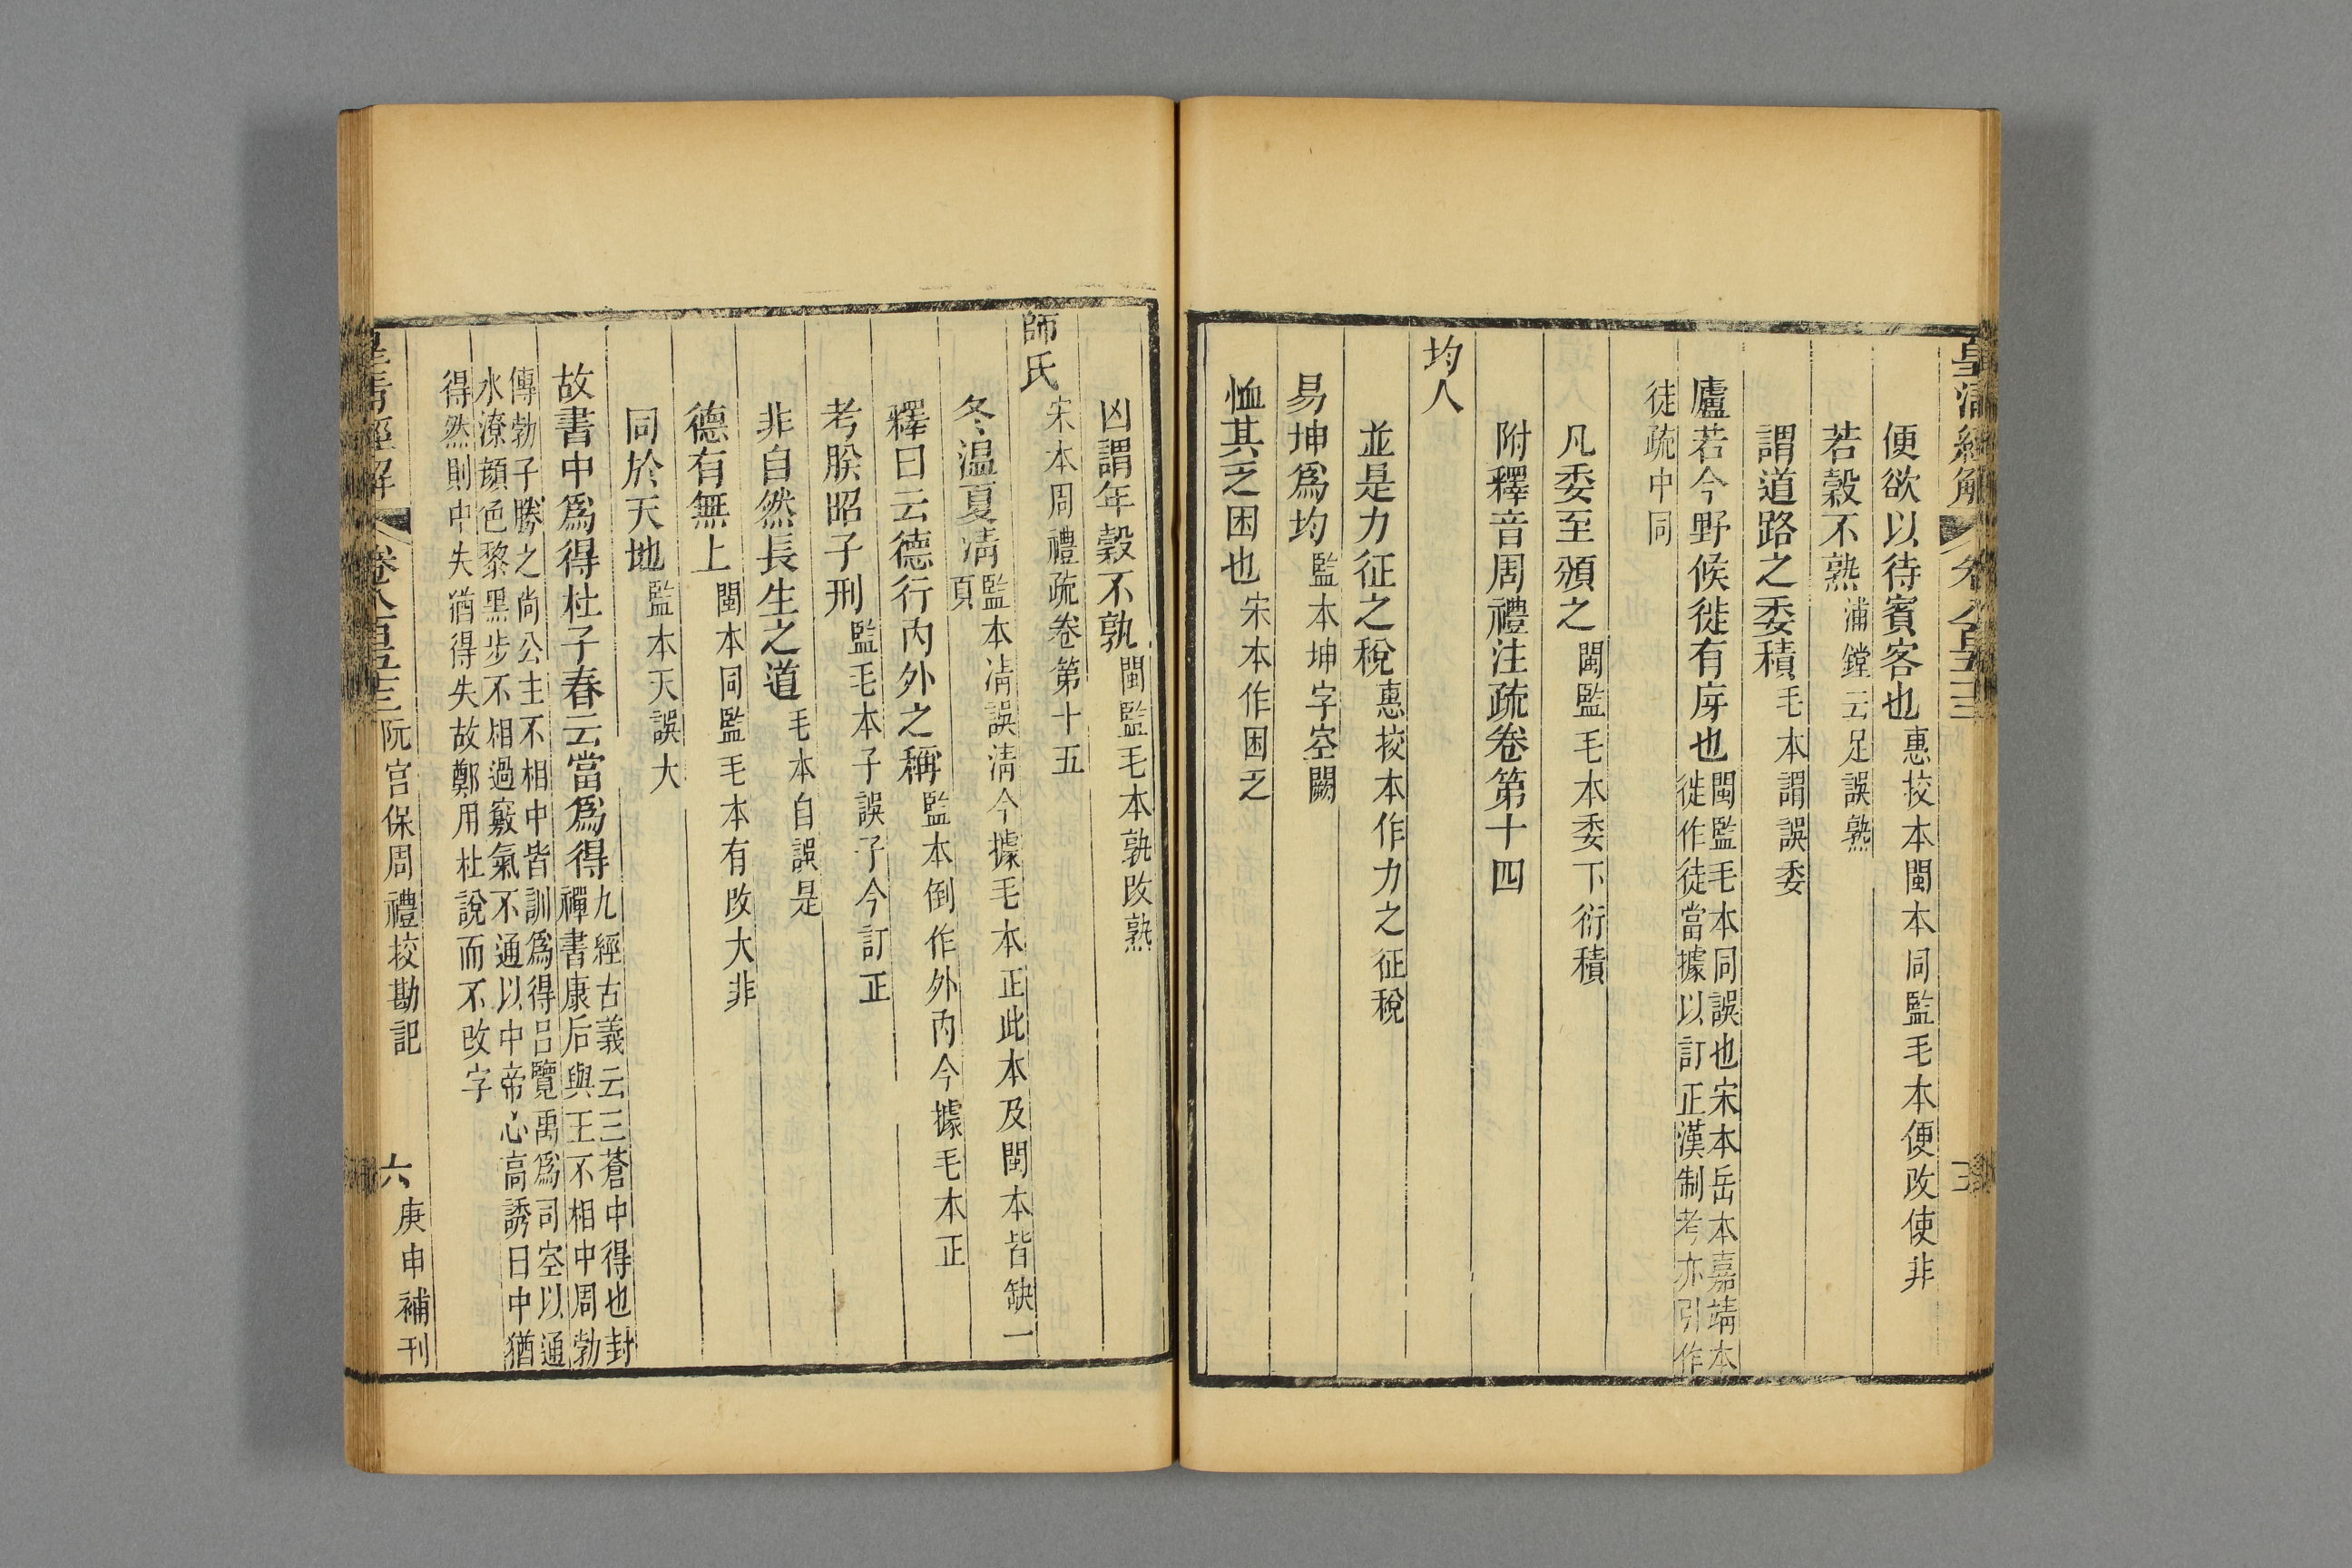 皇清經解 卷八百五十三
便欲以待賓客也 惠挍本閩本同監毛本便改使非
若穀不熟 浦鏜云足誤熟
謂道路之委積 毛本謂誤委
廬若今野候徙有庌也 閩監毛本同誤也宋本岳本嘉靖本徙作徒當據以訂正漢制考亦引作
徒疏中同
凡委至頒之 閩監毛本委下衍積
附釋音周禮注疏卷第十四
均人
並是力征之稅 惠挍本作力之征稅
易坤爲均 監本坤字空闕
恤其乏困也 宋本作困乏
凶謂年穀不孰 閩監毛本孰改熟
師氏 宋本周禮疏卷第十五
冬温夏凊 監本凊誤清今據毛本正此本及閩本皆缺一頁
釋曰云德行內外之稱 監本倒作外內今據毛本正
考朕昭子刑 監毛本子誤孑今訂正
非自然長生之道 毛本自誤是
德有無上 閩本同監毛本有改大非
同於天地 監本天誤大
故書中爲得杜子春云當爲得 九經古義云三蒼中得也封禪書康后與王不相中周勃
傳勃子勝之尚公主不相中皆訓爲得呂覽禹爲司空以通
水潦顏色黎黑步不相過竅氣不通以中帝心高誘曰中猶
得然則中失猶得失故鄭用杜說而不改字
皇清經解 卷八百五十三 阮宮保周禮挍勘記 六 庚申補刊